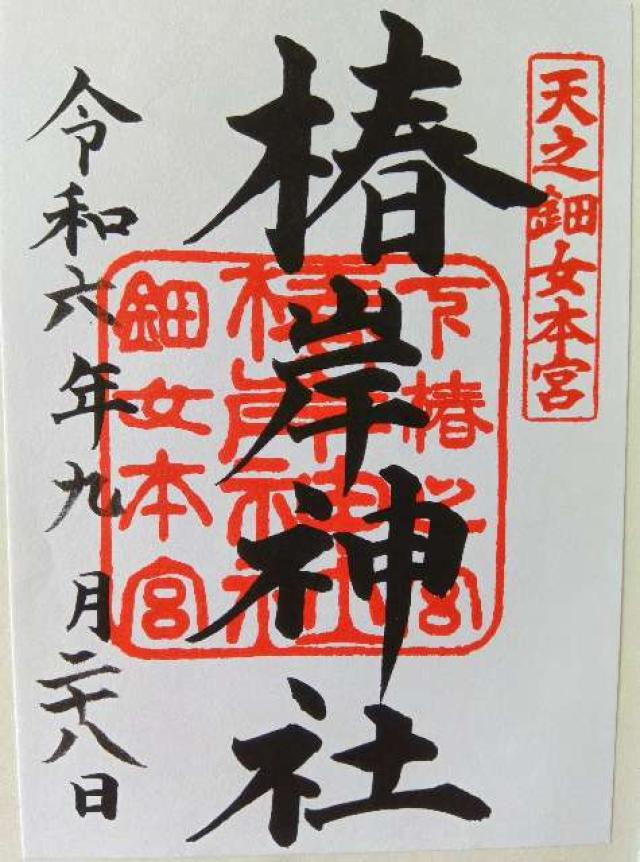 天之鈿女本宮
椿岸神社
下椿之宮
鈿女本宮
令和六年九月二十八日